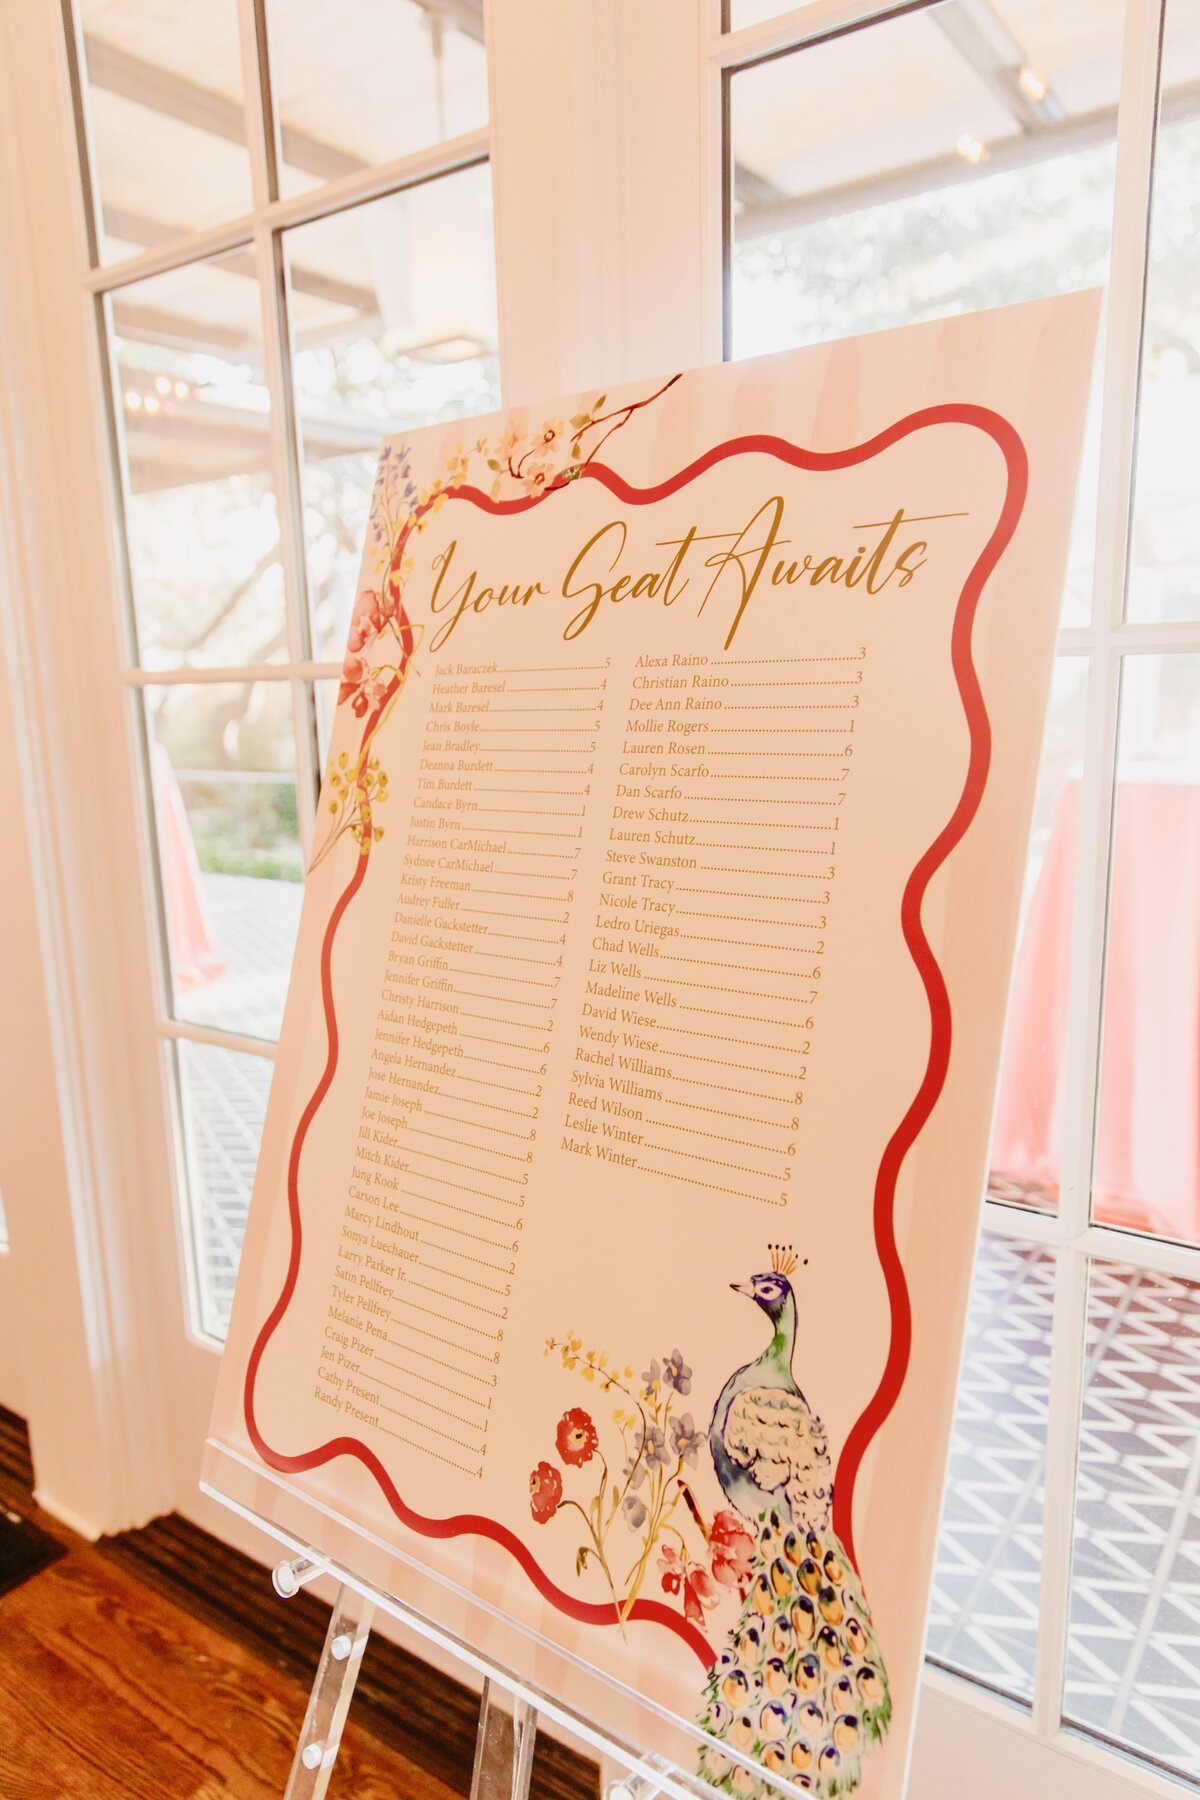 Your Seat Awaits
Jack Baraczek 5
Heather Baresel 4
Mark Baresel 4
Chris Boyle 5
Jean Bradley 5
Deanna Burdett 4
Tim Burdett 4
Candace Byrn 1
Justin Byrn 1
Harrison CarMichael 7
Sydnee CarMichael 7
Kristy Freeman 8
Audrey Fuller 2
Danielle Gackstetter 4
David Gackstetter 4
Bryan Griffin 7
Jennifer Griffin 7
Christy Harrison 2
Aidan Hedgepeth 6
Jennifer Hedgepeth 6
Angela Hernandez 2
Jose Hernandez 2
Jamie Joseph 8
Joe Joseph 8
Jill Kider 5
Mitch Kider 5
Jung Kook 6
Carson Lee 6
Marcy Lindhout 2
Sonya Luechauer 5
Larry Parker Jr. 2
Satin Pellfrey 8
Tyler Pellfrey 8
Melanie Pena 3
Craig Pizer 1
Jen Pizer 1
Cathy Present 4
Randy Present 4
Alexa Raino 3
Christian Raino 3
Dee Ann Raino 3
Mollie Rogers 1
Lauren Rosen 6
Carolyn Scarfo 7
Dan Scarfo 7
Drew Schutz 1
Lauren Schutz 1
Steve Swanston 3
Grant Tracy 3
Nicole Tracy 3
Ledro Uriegas 2
Chad Wells 6
Liz Wells 7
Madeline Wells 6
David Wiese 2
Wendy Wiese 2
Rachel Williams 8
Sylvia Williams 8
Reed Wilson 6
Leslie Winter 5
Mark Winter 5